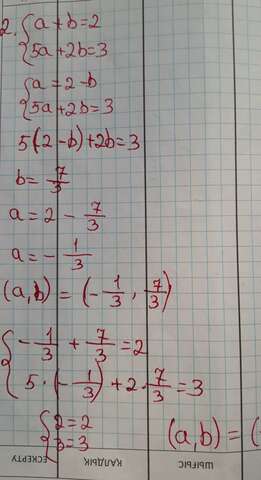 2. { a + b = 2
{ 5a + 2b = 3
{ a = 2 - b
{ 5a + 2b = 3
5(2 - b) + 2b = 3
b = 7/3
a = 2 - 7/3
a = - 1/3
(a, b) = (- 1/3, 7/3)
{ - 1/3 + 7/3 = 2
{ 5 · (- 1/3) + 2 · 7/3 = 3
{ 2 = 2
{ 3 = 3
(a, b) = (-
ЕСКЕРТУ ҚАЛДЫҚ ШЫҒЫС